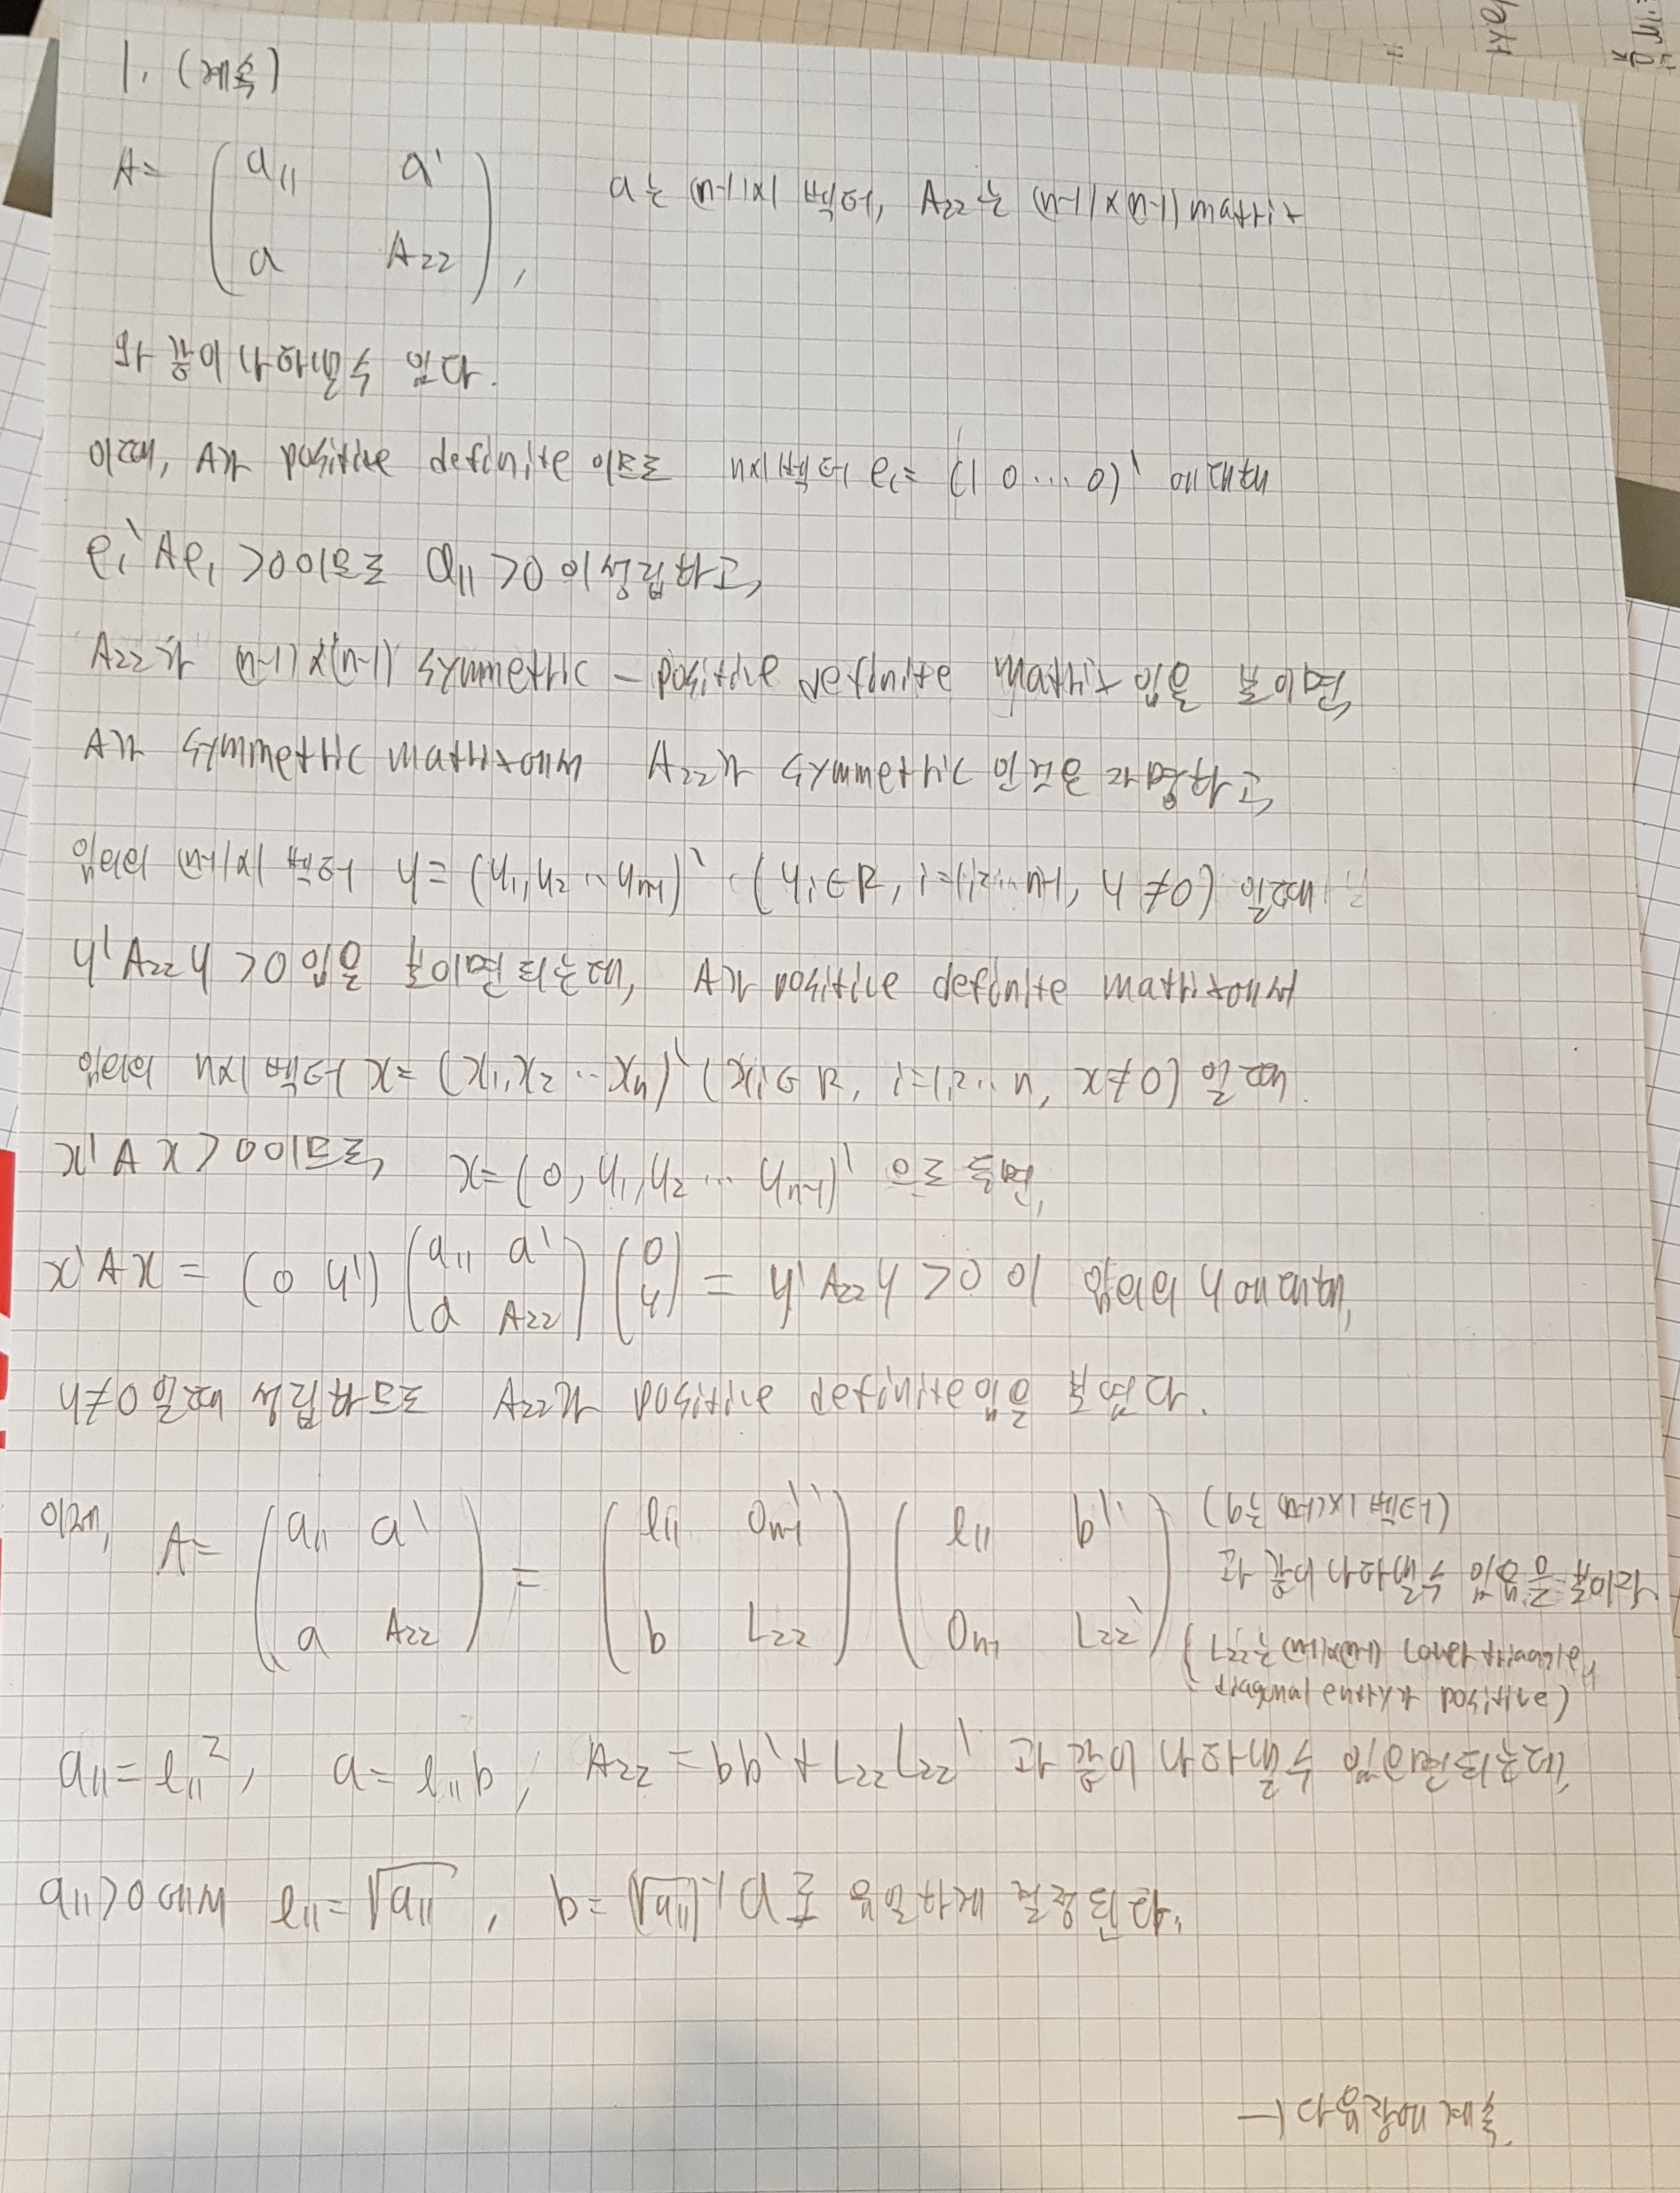 1. (계속)
A = ( a₁₁ a'
a A₂₂ ), a는 (n-1)×1 벡터, A₂₂는 (n-1)×(n-1) matrix
와 같이 나타낼수 있다.
이때, A가 positive definite 이므로 n×1 벡터 e₁ = (1 0 ⋯ 0)' 에 대해
e₁'Ae₁ >0이므로 a₁₁ >0 이 성립하고,
A₂₂가 (n-1)×(n-1) symmetric - positive definite matrix 임을 보이면,
A가 symmetric matrix에서 A₂₂가 symmetric 인것은 자명하고,
임의의 (n-1)×1 벡터 y = (y₁, y₂ ⋯ yₙ₋₁)' (yᵢ∈R, i=1,2,⋯ n-1, y ≠0) 일때
y'A₂₂y >0 임을 보이면 되는데, A가 positive definite matrix에서
임의의 n×1 벡터 x = (x₁, x₂ ⋯ xₙ)' (xᵢ∈R, i=1,2 ⋯ n, x≠0) 일때.
x'Ax > 0이므로, x = (0, y₁, y₂ ⋯ yₙ₋₁)' 으로 두면,
x'Ax = (0 y') ( a₁₁ a' / a A₂₂ ) ( 0 / y ) = y'A₂₂y >0 이 임의의 y에 대해,
y≠0 일때 성립하므로 A₂₂가 positive definite임을 보였다.
이제, A = ( a₁₁ a' / a A₂₂ ) = ( l₁₁ 0ₙ₋₁' / b L₂₂ ) ( l₁₁ b' / 0ₙ₋₁ L₂₂' ) (b는 (n-1)×1 벡터)
과 같이 나타낼수 있음을 보이자
(L₂₂는 (n-1)×(n-1) lower triangle,
diagonal entry가 positive)
a₁₁ = l₁₁², a = l₁₁b, A₂₂ = bb' + L₂₂L₂₂' 과 같이 나타낼수 있으면 되는데,
a₁₁>0 에서 l₁₁ = √a₁₁, b = (√a₁₁)⁻¹a 로 유일하게 결정된다.
→ 다음장에 계속.